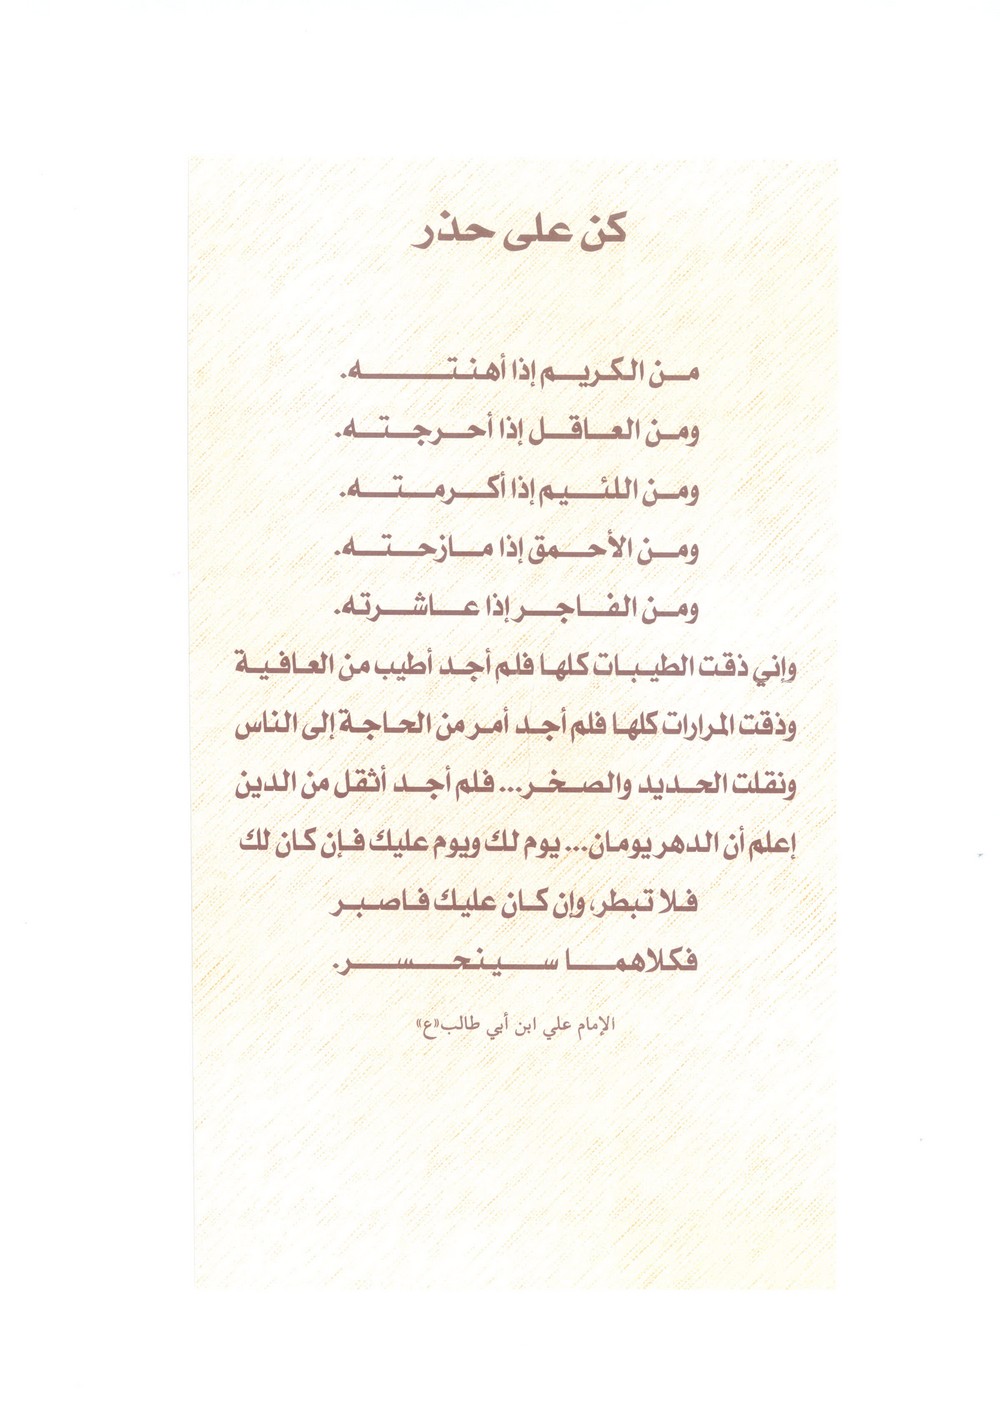 كن على حذر
من الكريم إذا أهنته.
ومن العاقل إذا أحرجته.
ومن اللئيم إذا أكرمته.
ومن الأحمق إذا مازحته.
ومن الفاجر إذا عاشرته.
وإني ذقت الطيبات كلها فلم أجد أطيب من العافية
وذقت المرارات كلها فلم أجد أمر من الحاجة إلى الناس
ونقلت الحديد والصخر... فلم أجد أثقل من الدين
إعلم أن الدهر يومان... يوم لك ويوم عليك فإن كان لك
فلا تبطر، وإن كان عليك فاصبر
فكلاهما سينحسر.
الإمام علي ابن أبي طالب«ع»